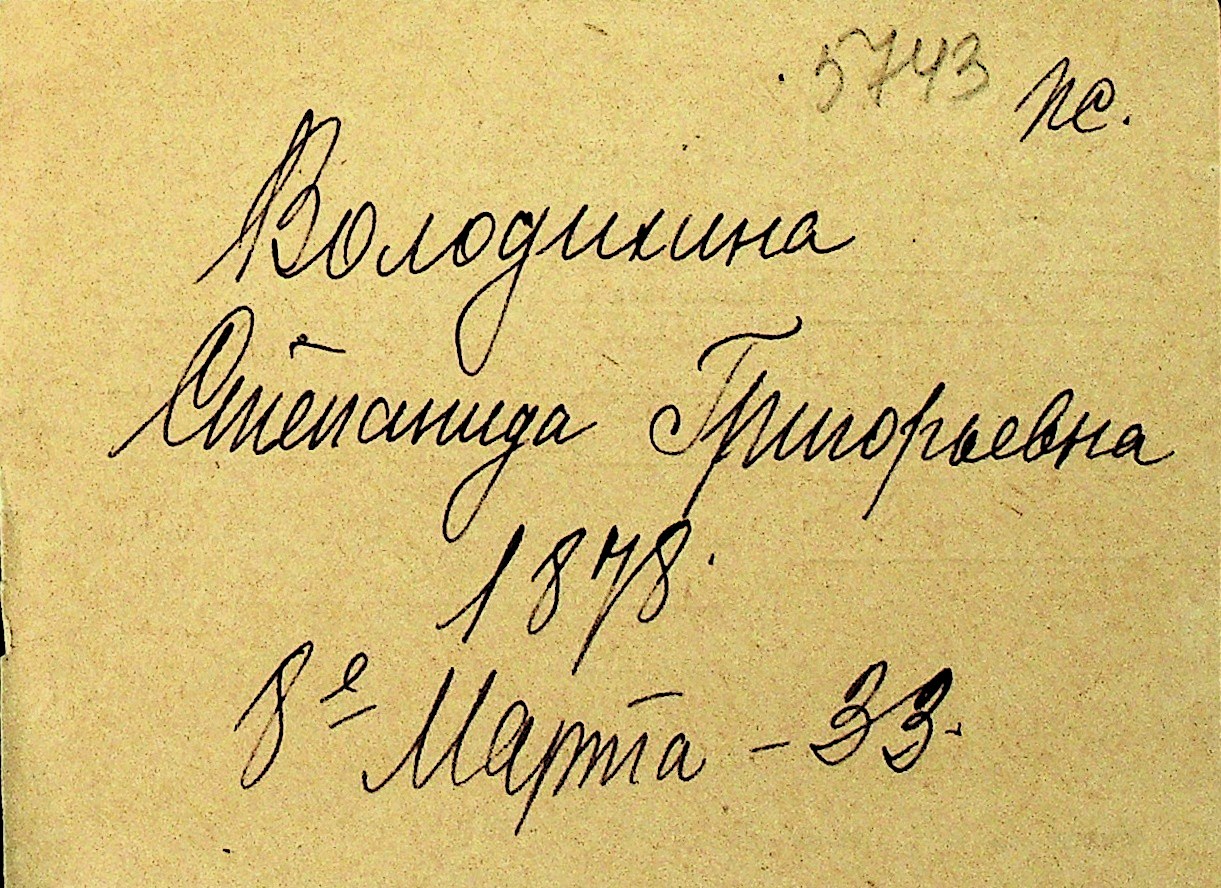 5743 пс.
Володихина
Степанида Григорьевна
1878.
8е Марта - 33.